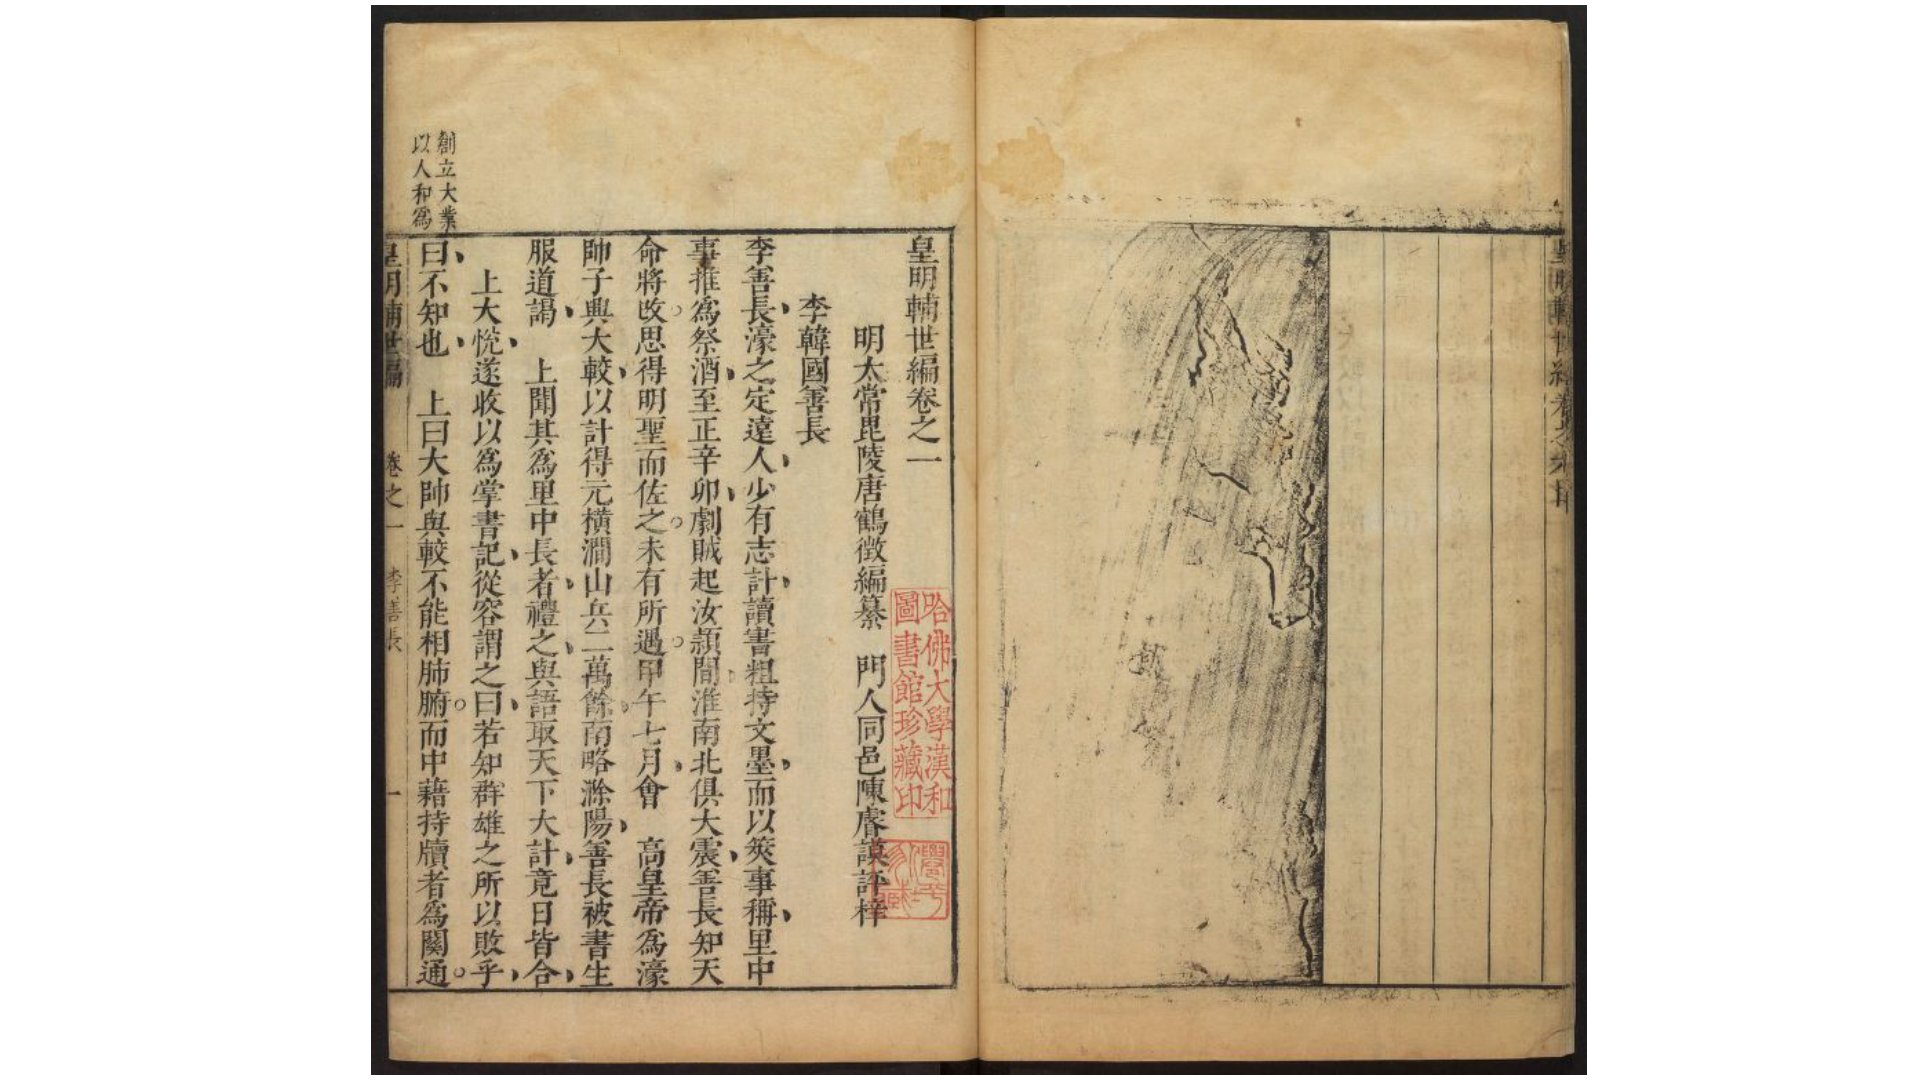 皇明輔世編卷之一
明太常毘陵唐鶴徵編纂　門人同邑陳睿謨評梓
李韓國善長
李善長濠之定遠人少有志計讀書粗持文墨而以筴事稱里中
事推爲祭酒至正辛卯劇賊起汝潁間淮南北俱大震善長知天
命將改思得明聖而佐之未有所遇甲午七月會　高皇帝爲濠
帥子興大較以計得元橫澗山兵二萬餘南略滁陽善長被書生
服道謁　上聞其爲里中長者禮之與語取天下大計竟日皆合
上大悅遂收以爲掌書記從容謂之曰若知群雄之所以敗乎
曰不知也　上曰大帥與較不能相肺腑而中藉持牘者爲關通
創立大業
以人和爲
皇明輔世編　卷之一　李善長　一
哈佛大學漢和
圖書館珍藏印